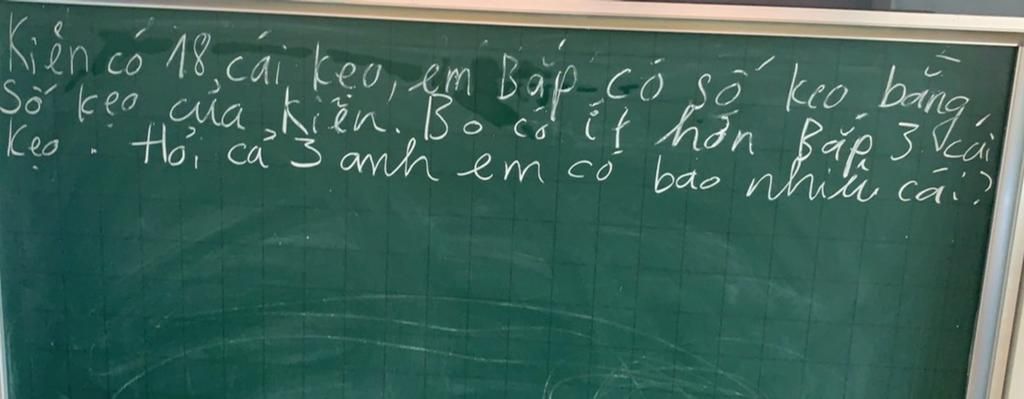 Kiên có 18 cái kẹo, em Bắp có số kẹo bằng
số kẹo của Kiên. Bo có ít hơn Bắp 3 cái
kẹo. Hỏi cả 3 anh em có bao nhiêu cái?